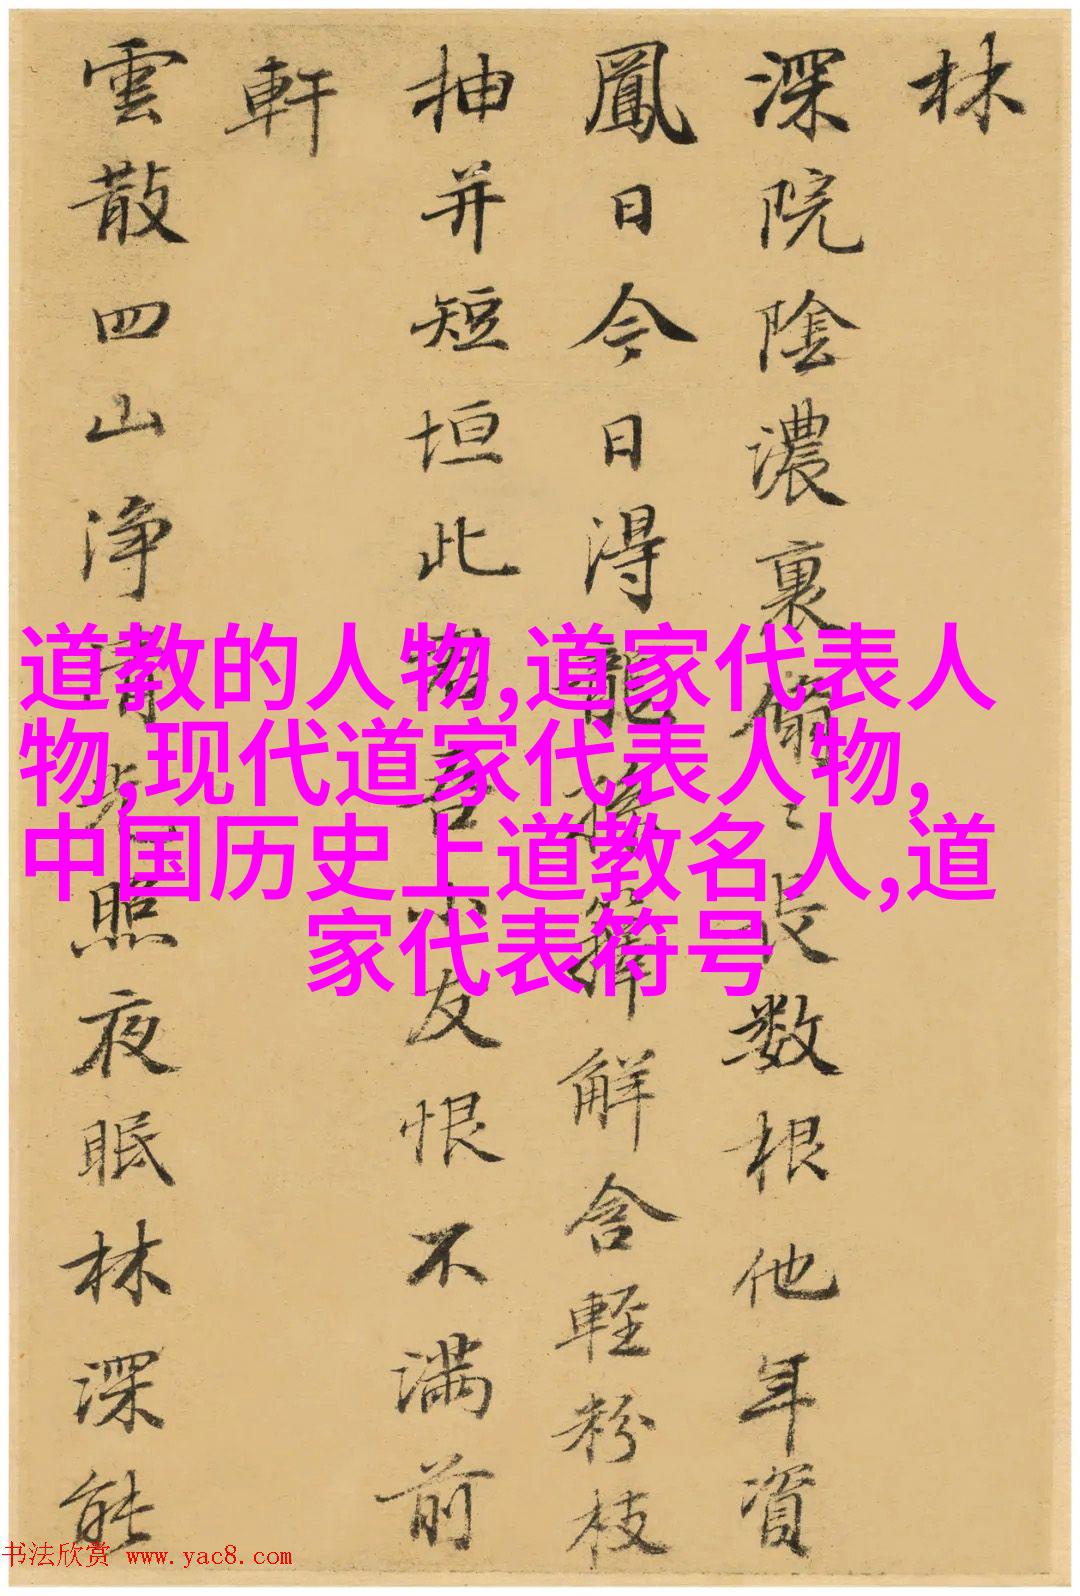 林
深院陰濃裏偏〻長数根他年資
鳳日今日得龍孫籜解含輕粉枝
抽并短垣此君吾小友恨不满前
軒
雲散四山净清光照夜眠林深能
道教的人物,道家代表人
物,现代道家代表人物,
中国历史上道教名人,道
家代表符号
书法欣赏 www.yac8.com